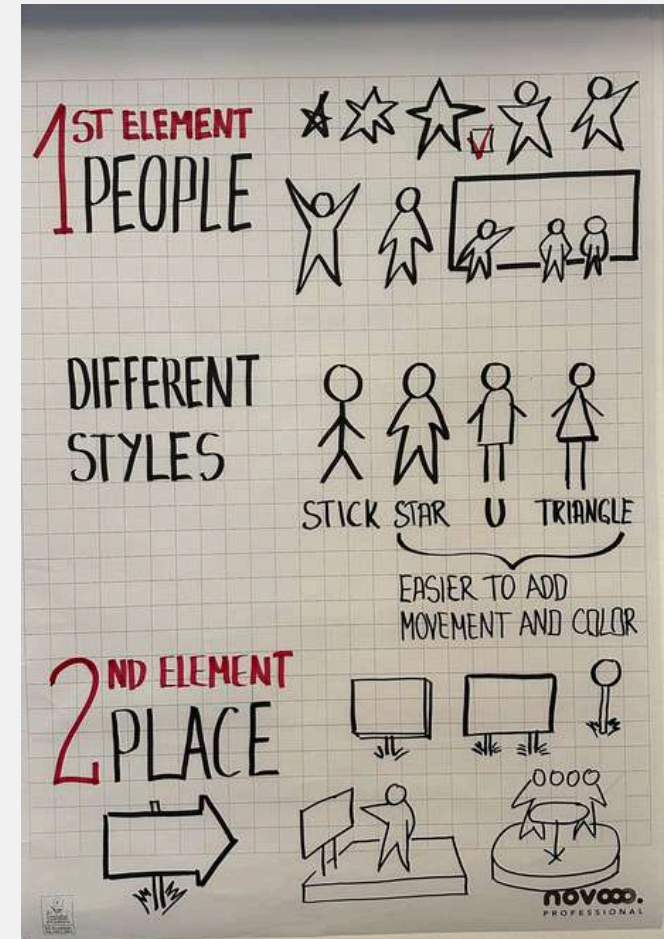 1ST ELEMENT
PEOPLE
DIFFERENT
STYLES
STICK STAR U TRIANGLE
EASIER TO ADD
MOVEMENT AND COLOR
2ND ELEMENT
PLACE
novooo.
PROFESSIONAL